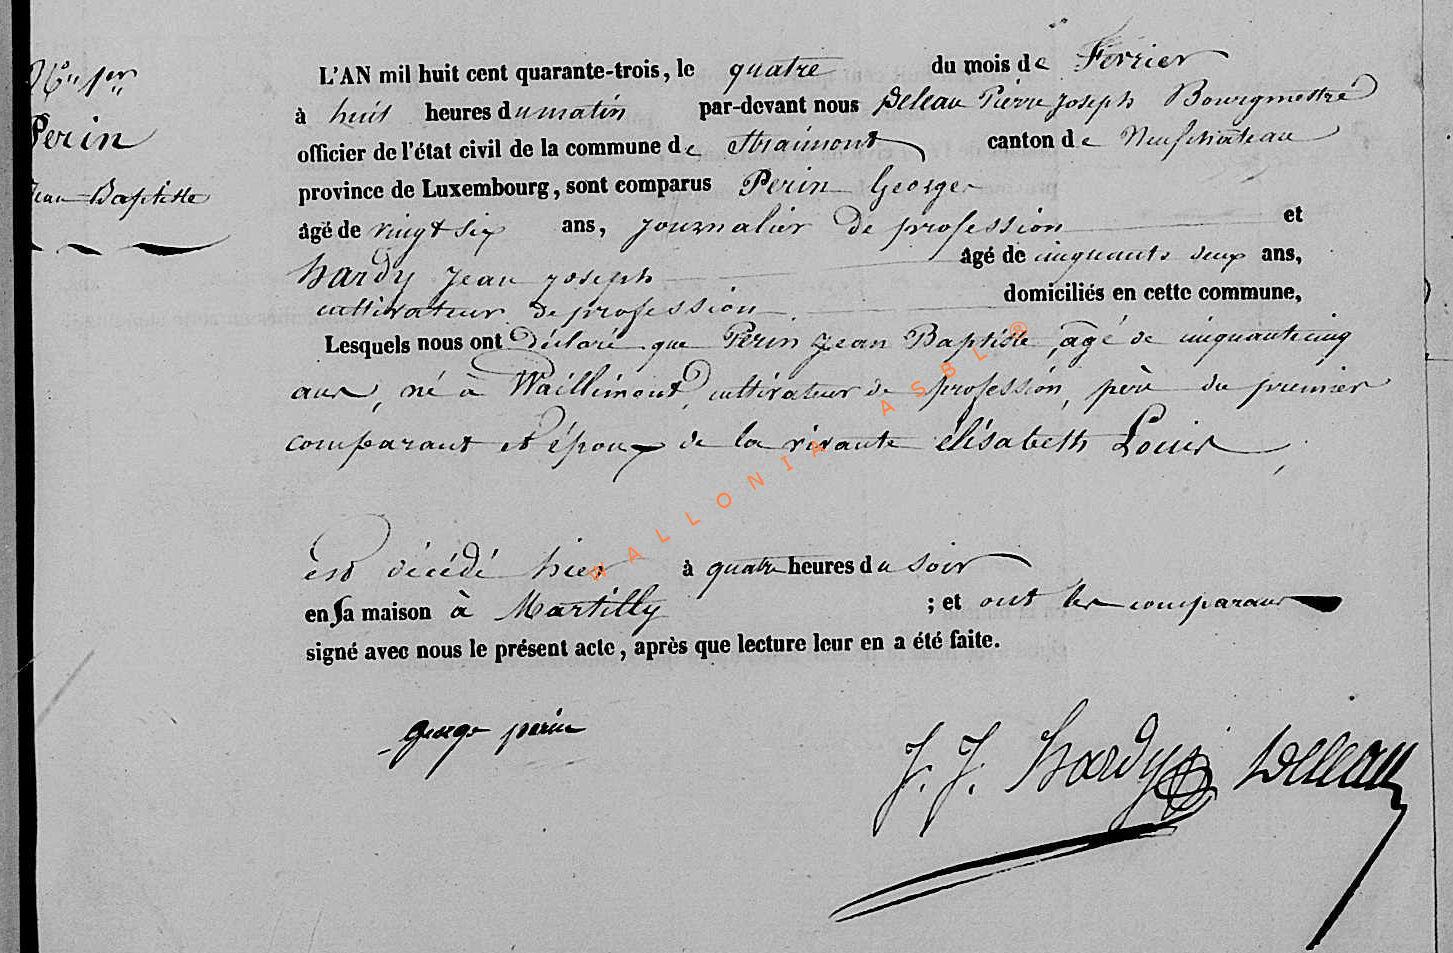 N° 1er
Perin
Jean Baptiste
L'AN mil huit cent quarante-trois, le quatre du mois de Fevrier
à huit heures du matin par-devant nous Deleau Pierre Joseph Bourgmestre
officier de l'état civil de la commune de Straimont canton de Neufchateau
province de Luxembourg, sont comparus Perin George
âgé de vingt six ans, journalier de profession et
hardy Jean joseph âgé de cinquante deux ans,
cultivateur de profession domiciliés en cette commune,
Lesquels nous ont Déclaré que Perin Jean Baptiste, agé de cinquantecinq
ans, né à Waillimont, cultivateur de profession, père du premier
comparant et époux de la vivante élisabeth Louis,
est décédé hier à quatre heures du soir
en sa maison à Martilly ; et ont les comparans
signé avec nous le présent acte, après que lecture leur en a été faite.
george perin
J. J. Hardy Deleau
WALLONIA ASBL ®